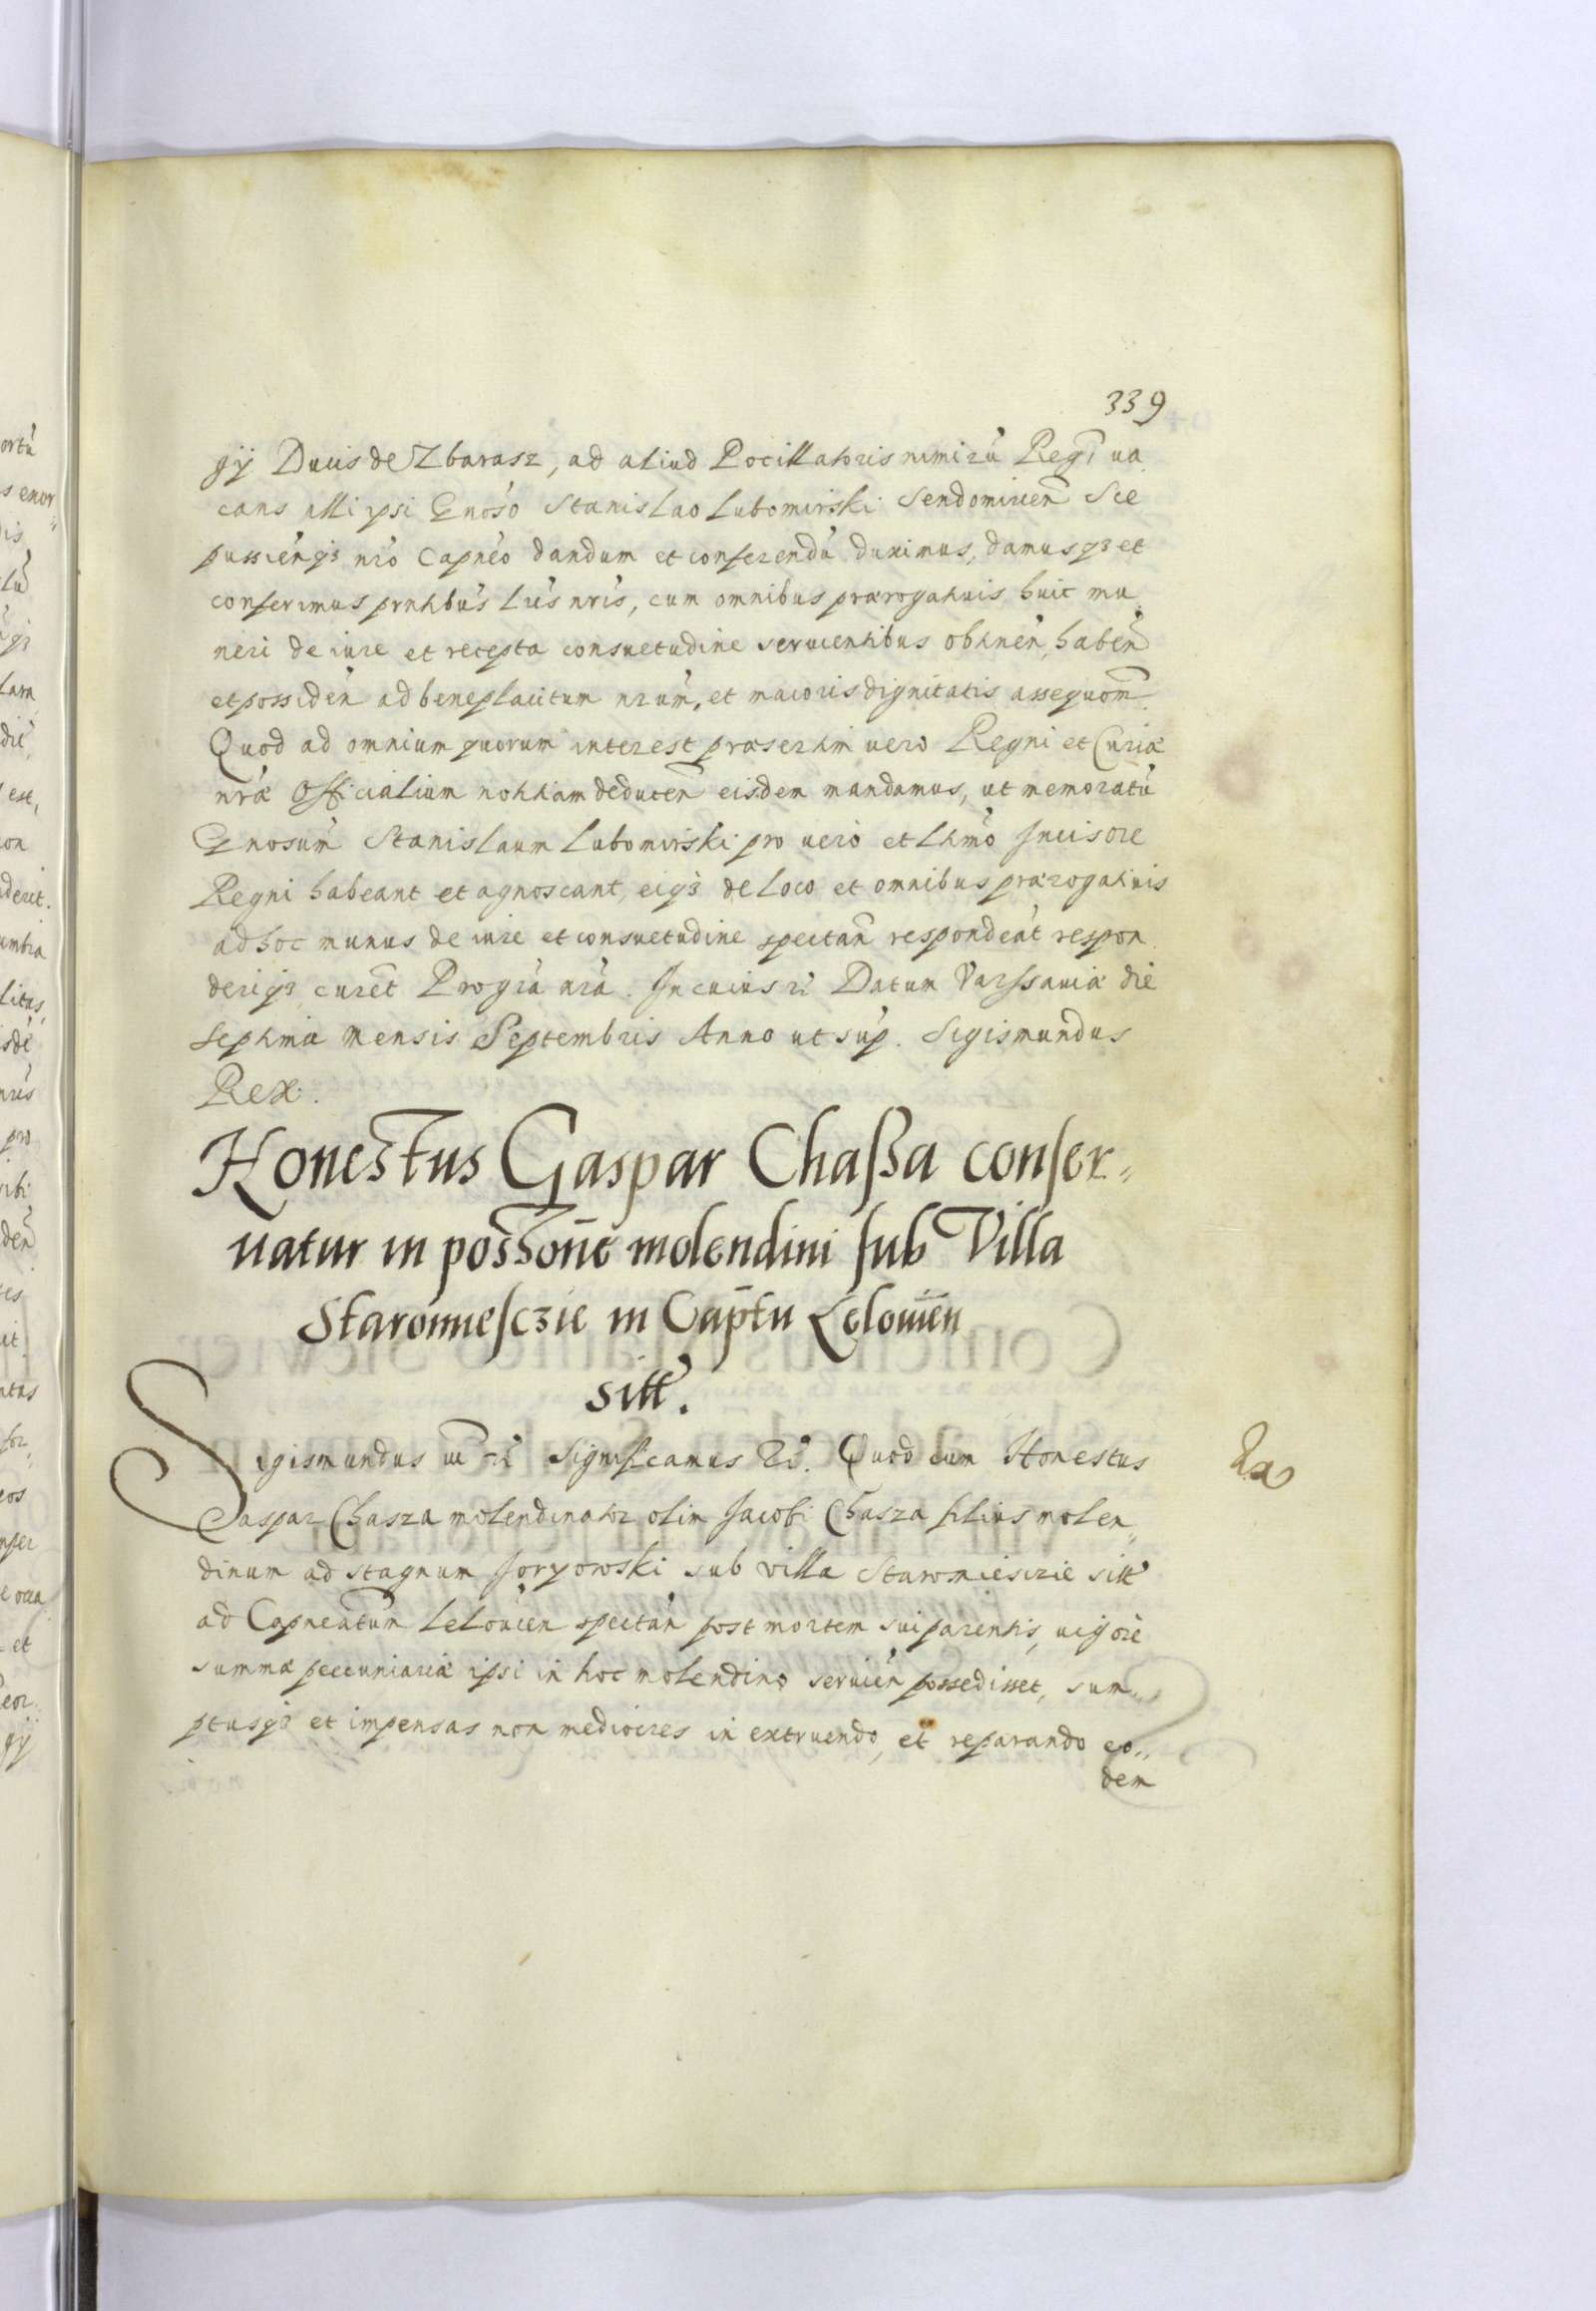 339
gÿ Ducis de Zbarasz, ad aliud Pocillatoris nimirũ Regĩ ua
cans illi ipsi Gnoso Stanislao Lubomirski Sendomirien Sce
pussienq3 nro Capneo dandum et conferendũ duximus, damusq3 et
conferimus pntibus Lris nris, cum omnibus prærogatiuis huic mu
neri de iure et recepta consuetudine seruientibus obtinen, haben
et possiden ad beneplacitum nrum, et maioris dignitatis assequom.
Quod ad omnium quorum interest præsertim uero Regni et Curiæ
nræ Officialium notitiam deducen eisdem mandamus, ut memoratũ
Gnosum Stanislaum Lubomirski pro uero et Ltimo Incisore
Regni habeant et agnoscant, eiq3 de loco et omnibus prærogatiuis
ad hoc munus de iure et consuetudine spectan respondeat respon
deriq3 curet Pro gra nra. In cuius ri Datum Varssauiæ die
septima mensis Septembris Anno ut sup. Sigismundus
Rex.
Honestus Gaspar Chaßa conser„
uatur in possone molendini sub Villa
Staromiesczie in Captu Lelouien
sitt.
Sigismundus ut ri Significamus Ri. Quod cum Honestus
Gaspar Chasza molendinator olim Jacobi Chasza filius molen„
dinum ad stagnum Joryowski sub villa Staromiesczie sitt
ad Capneatum Lelouien spectan post mortem sui parentis, uigore
summæ pecuniariæ ipsi in hoc molendino seruien possedisset, sum„
ptusq3 et impensas non mediocres in extruendo, et reparando eo„
dem